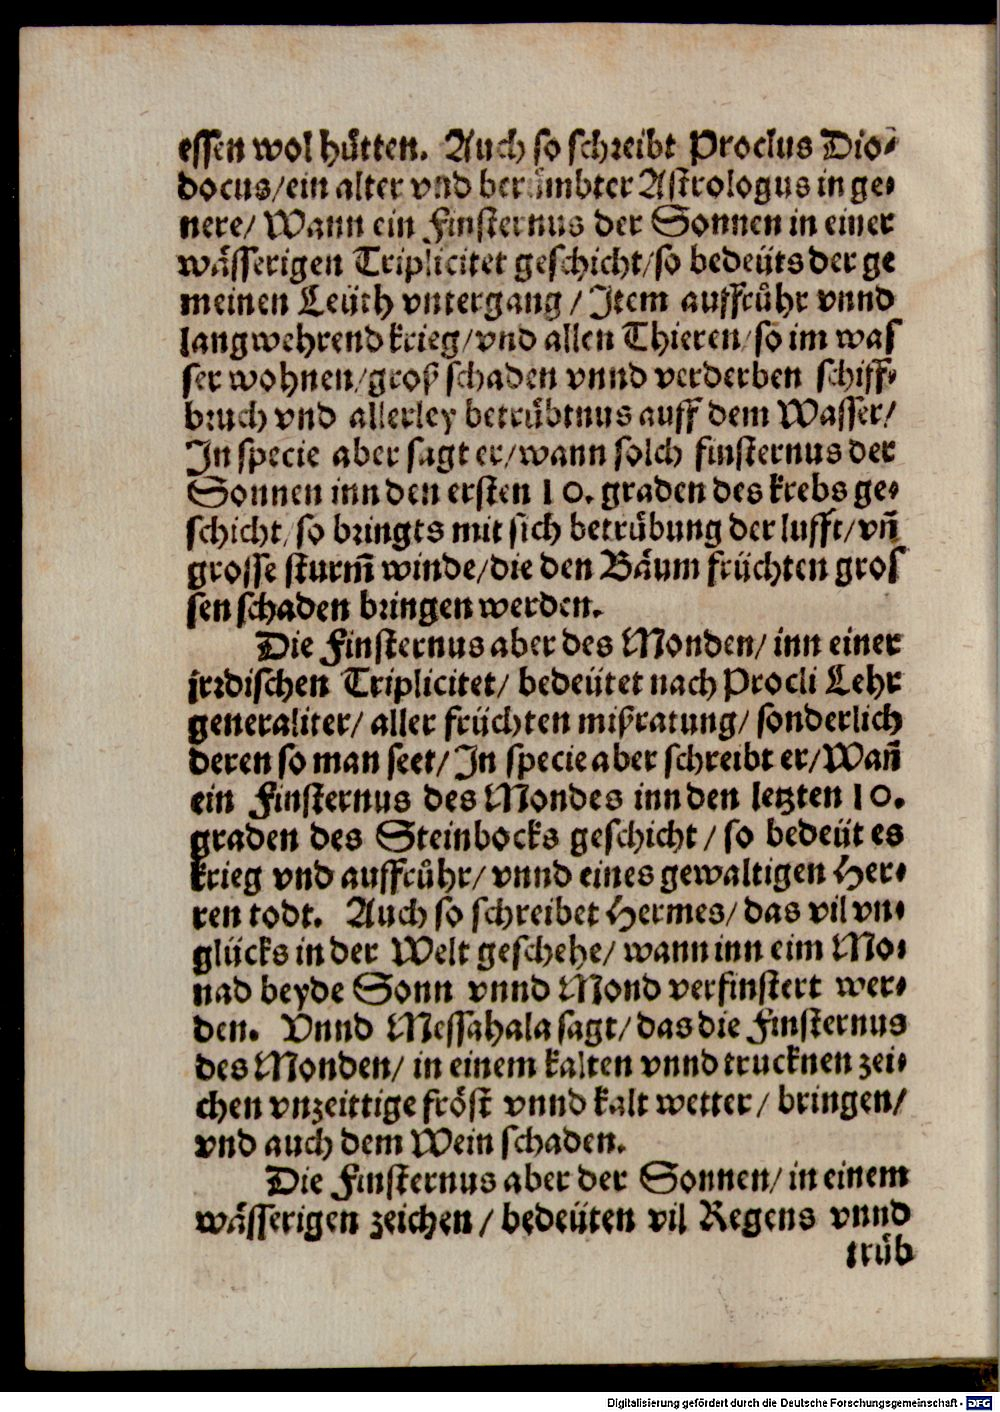 essen wol hůtten. Auch so schreibt Proclus Dio-
docus/ein alter vnd berůmbter Astrologus in ge-
nere/ Wann ein Finsternus der Sonnen in einer
wåsserigen Triplicitet geschicht/so bedeüts der ge
meinen Leüth vntergang / Item auffrůhr vnnd
langwehrend krieg/vnd allen Thieren/so im was
ser wohnen/groß schaden vnnd verderben schiff-
bruch vnd allerley betrůbtnus auff dem Wasser/
In specie aber sagt er/wann solch finsternus der
Sonnen inn den ersten 10. graden des krebs ge-
schicht/so bringts mit sich betrůbung der lufft/vñ
grosse sturm̃ winde/die den Båum früchten gros
sen schaden bringen werden.
Die Finsternus aber des Monden/ inn einer
jrrdischen Triplicitet/ bedeütet nach Procli Lehr
generaliter/ aller früchten mißratung/ sonderlich
deren so man seet/ In specie aber schreibt er/Wañ
ein Finsternus des Mondes inn den letzten 10.
graden des Steinbocks geschicht / so bedeüt es
krieg vnd auffrůhr/ vnnd eines gewaltigen Her-
ren todt. Auch so schreibet Hermes/ das vil vn-
glücks in der Welt geschehe/ wann inn eim Mo-
nad beyde Sonn vnnd Mond verfinstert wer-
den. Vnnd Messahala sagt/ das die Finsternus
des Monden/ in einem kalten vnnd trucknen zei-
chen vnzeittige fröst vnnd kalt wetter / bringen/
vnd auch dem Wein schaden.
Die Finsternus aber der Sonnen/ in einem
wåsserigen zeichen / bedeüten vil Regens vnnd
trüb
Digitalisierung gefördert durch die Deutsche Forschungsgemeinschaft - DFG